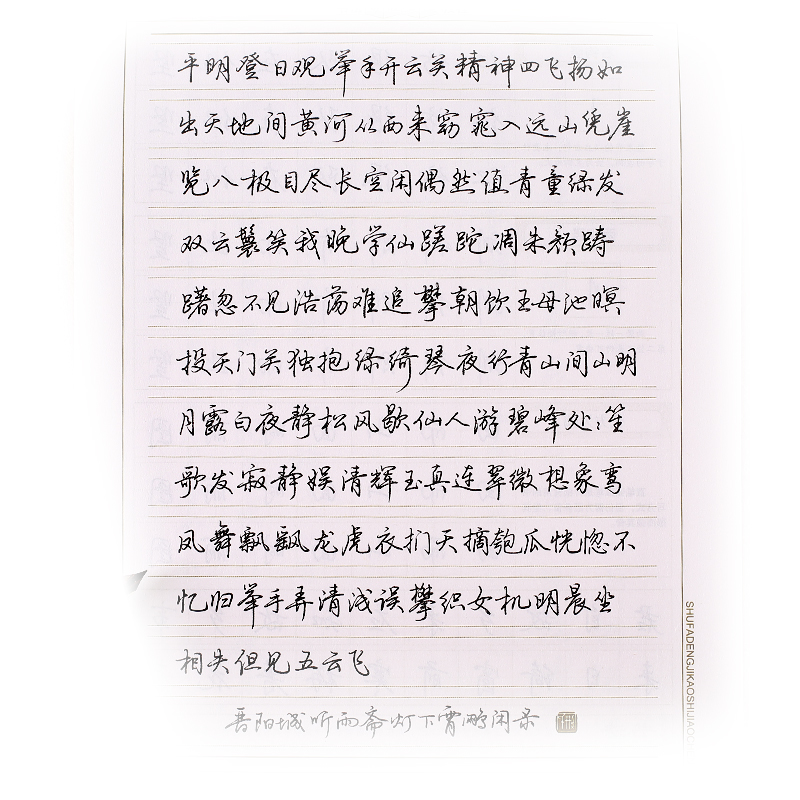 平明登日观举手开云关精神四飞扬如
出天地间黄河从西来窈窕入远山凭崖
览八极目尽长空闲偶然值青童绿发
双云鬟笑我晚学仙蹉跎凋朱颜踌
躇忽不见浩荡难追攀朝饮王母池暝
投天门关独抱绿绮琴夜行青山间山明
月露白夜静松风歇仙人游碧峰处:笙
歌发寂静娱清辉玉真连翠微想象鸾
凤舞飘飖龙虎衣扪天摘匏瓜恍惚不
忆归举手弄清浅误攀织女机明晨坐
相失但见五云飞
晋阳城听雨斋灯下霄鹏闲录
SHUFADENGJIKAOSHIJIAOC